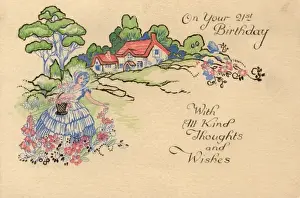 On Your 21st
Birthday
With
All Kind
Thoughts
and
Wishes